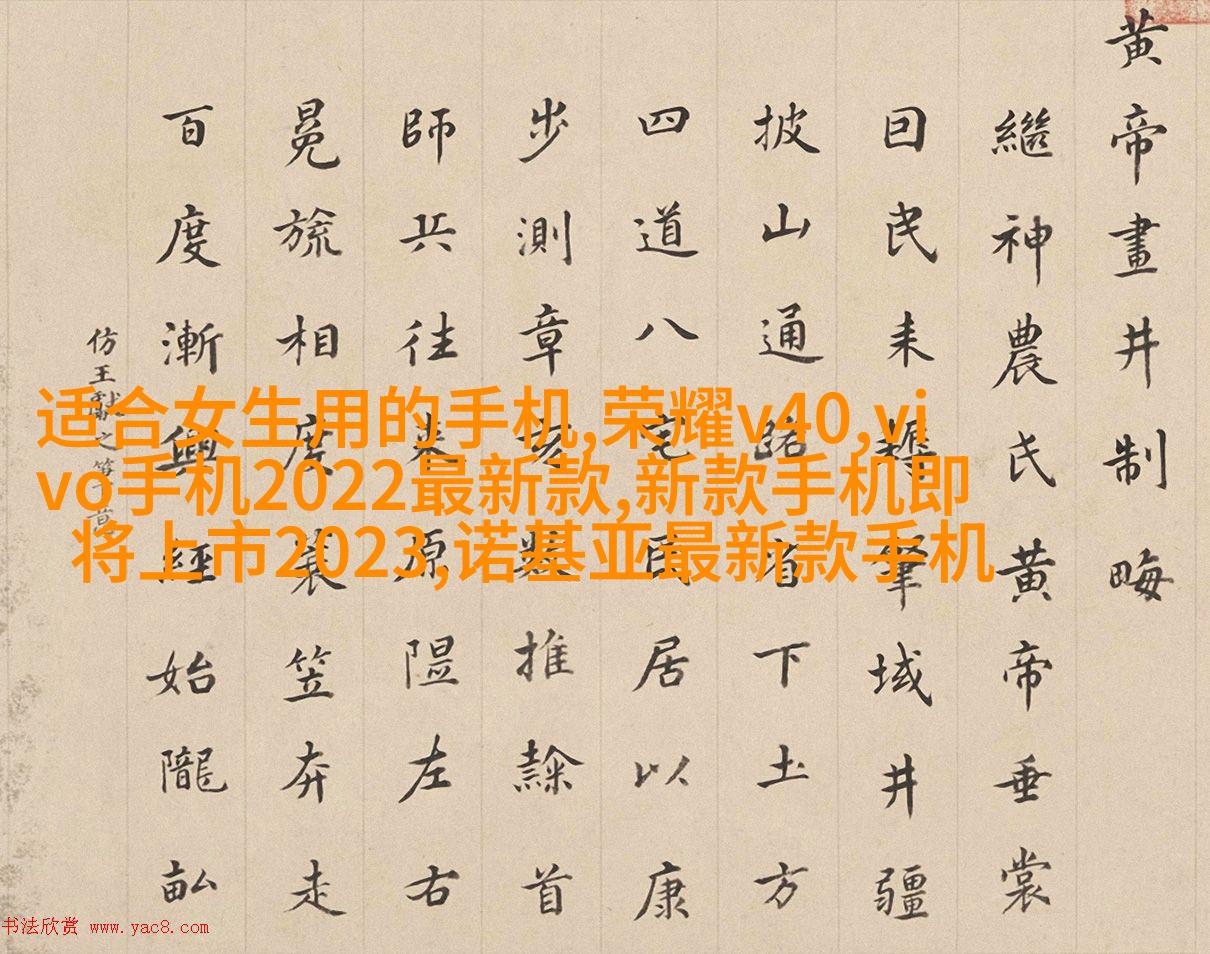 黄帝畫井制畮
繼神農氏黄帝垂裳
囙民耒耨肇域井疆
披山通路有下土方
四道八宅民居以康
步測章亥數推隸首
師兵往来原隰左右
冕旒相度蓑笠奔走
百度漸興經始隴畝
仿王獻之筆意
适合女生用的手机,荣耀v40,vi
vo手机2022最新款,新款手机即
将上市2023,诺基亚最新款手机
书法欣赏 www.yac8.com